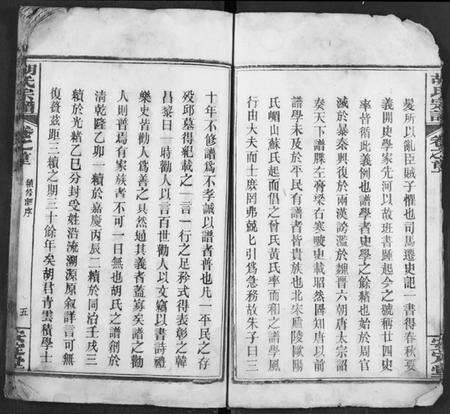 髮所以亂臣賊子懼也司馬遷史記一書得春秋褒
義開史學家先河以故班書踵起今之號稱廿四史
率皆循此義例也譜學者史學之餘緒也始於周官
滅於暴秦興復於兩漢訪濫於魏晉六朝唐太宗詔
奏天下譜牒左膏梁右寒畯史載昭然固知唐以前
譜學未及於平民有譜者皆貴族也北宋廬陵歐陽
氏嵋山蘇氏起而倡之曾氏黃氏率而和之譜學風
行由大夫而士庶罔弗兢匕引為急務故朱子曰三
十年不修譜為不孝誠以譜者普也凡一平民之存
歿邱墓得紀載一言一行之足矜式得表彰之韓
昌黎曰一時勸人以言百世勸人以文竊以書詩禮
樂史皆勸人為善之具然通其義者蓋寡矣譜之勸
人則普焉有家族者不可一日無也胡氏之譜創於
清乾隆乙卯一續於嘉慶丙辰二續於同治壬戌三
續於光緒乙巳分封受姓沿流溯源原敘詳言可無
復贅茲距三續之期三十餘年矣胡君青雲積學士
胡氏宗譜
卷之首
五
安定堂
胡氏宗譜
卷之首
安定堂